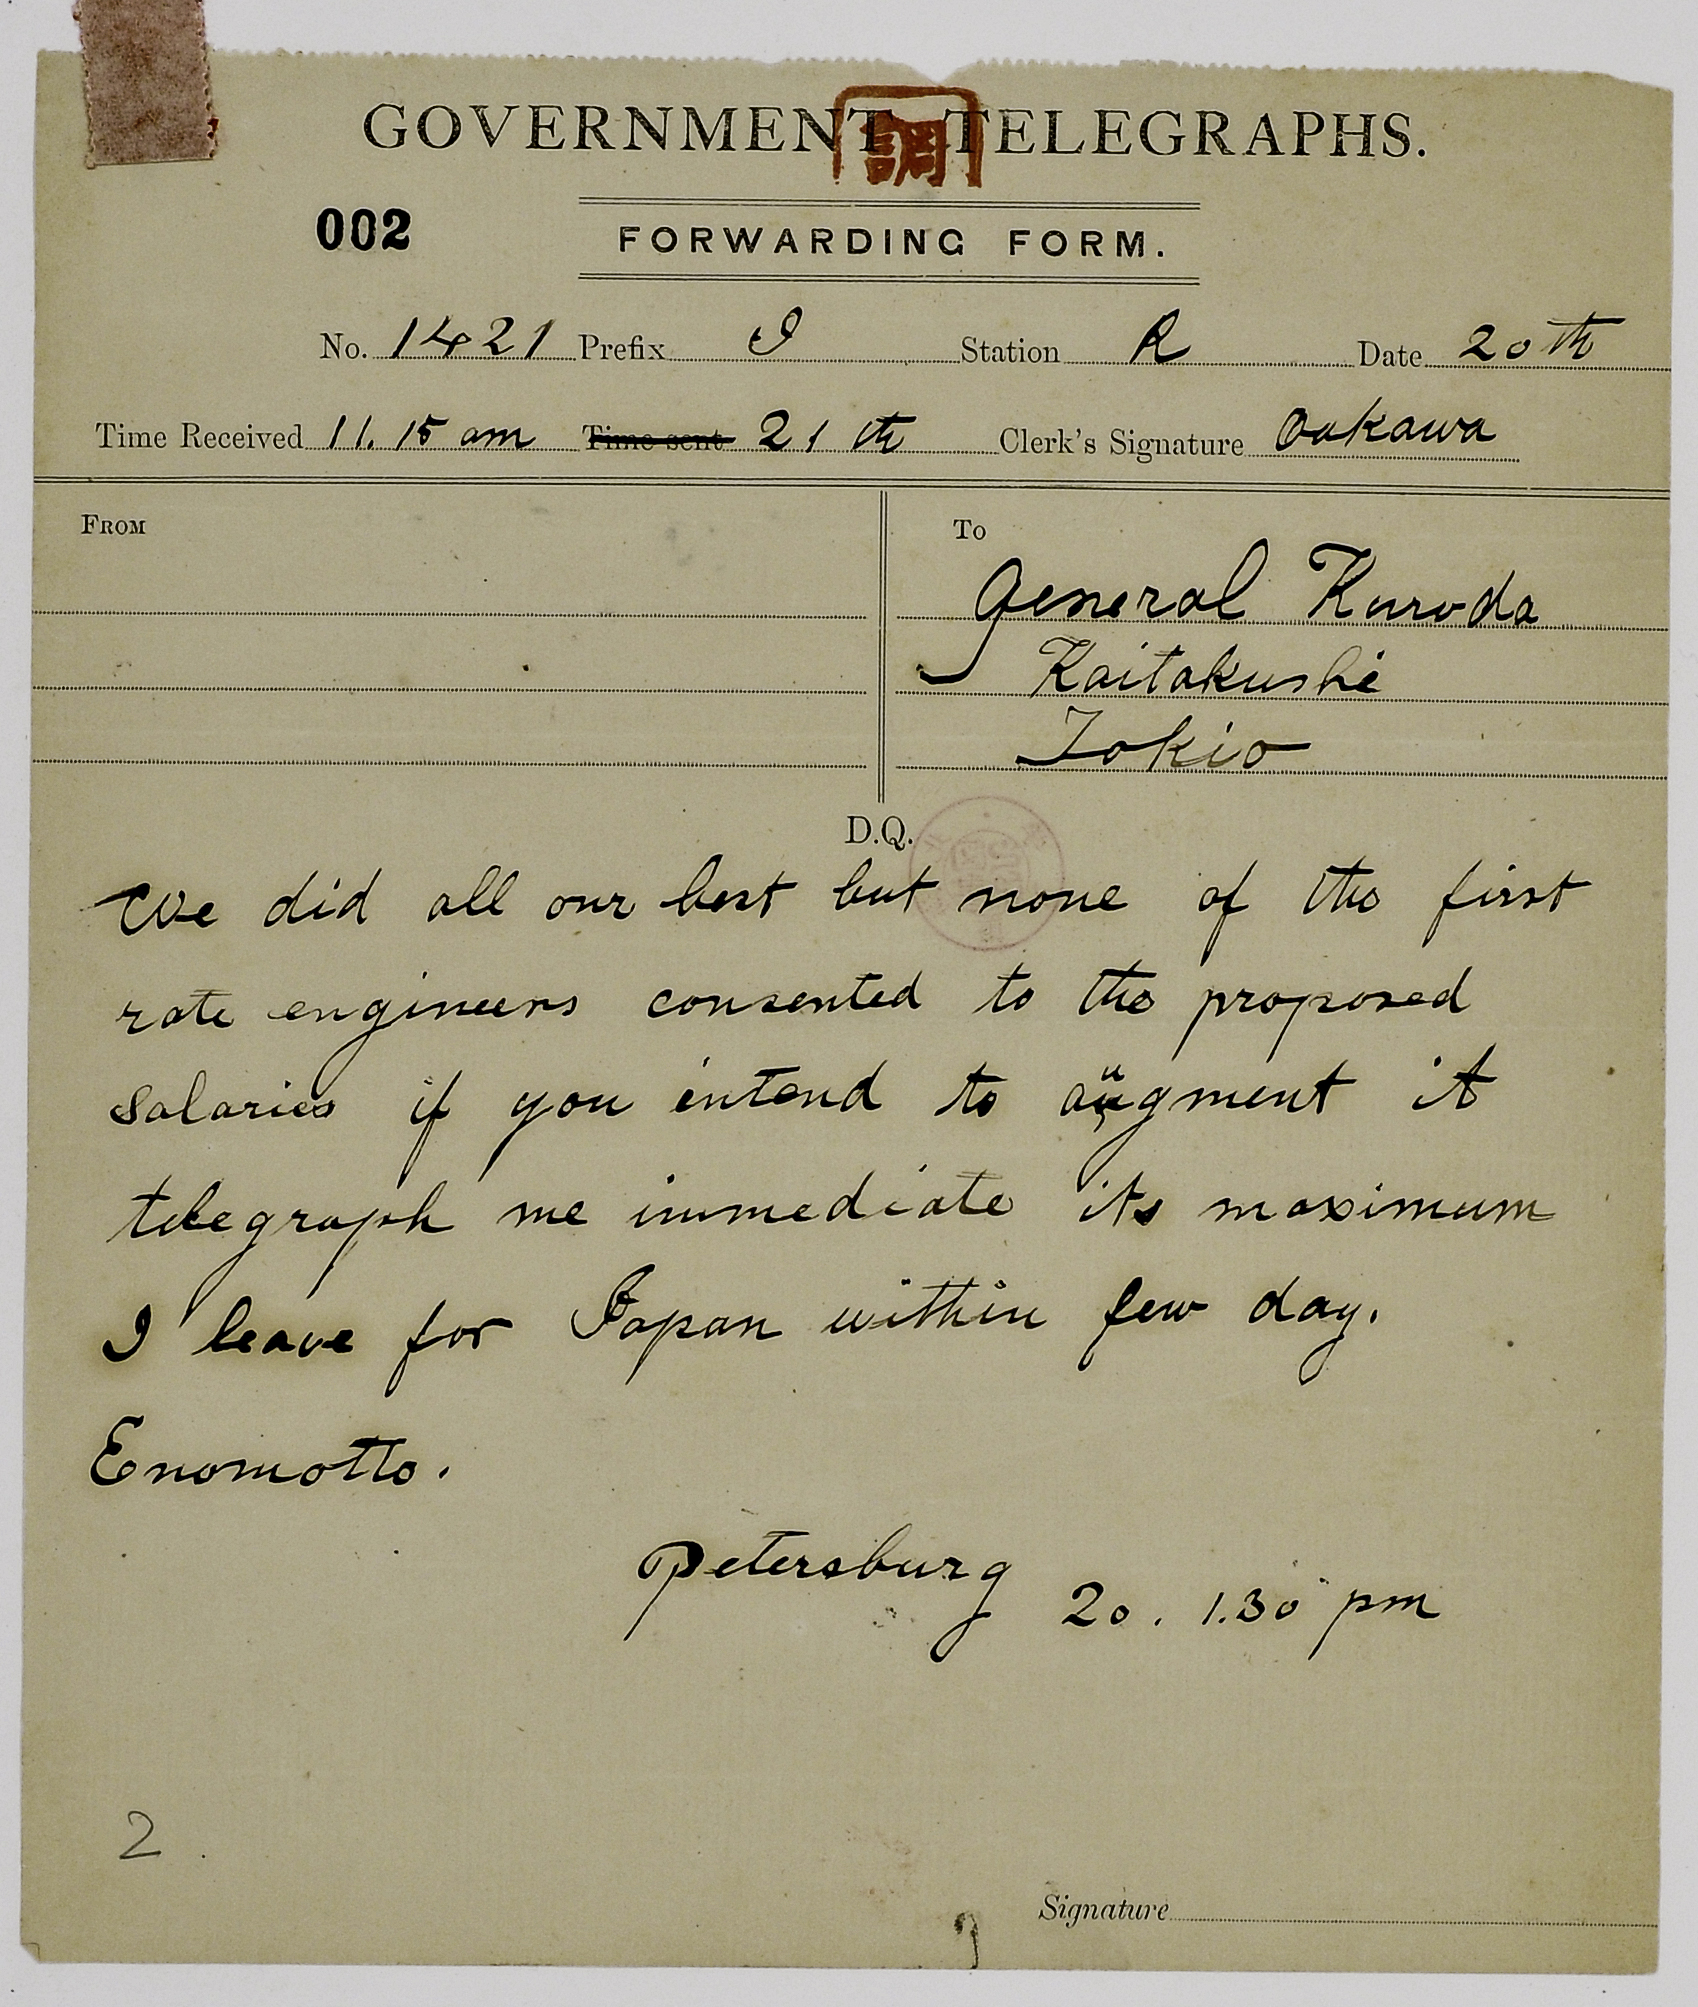 GOVERNMENT TELEGRAPHS.
調
002
FORWARDING FORM.
No. 1421 Prefix I Station R Date 20th
Time Received 11.15 am Time sent 21 th Clerk's Signature Ookawa
FROM
To
General Kuroda
Kaitakushi
Tokio
D.Q.
We did all our best but none of the first
rate engineers consented to the proposed
salaries if you intend to augment it
telegraph me immediate its maximum
I leave for Japan within few day.
Enomotto.
Petersburg 20. 1.30 pm
2.
Signature